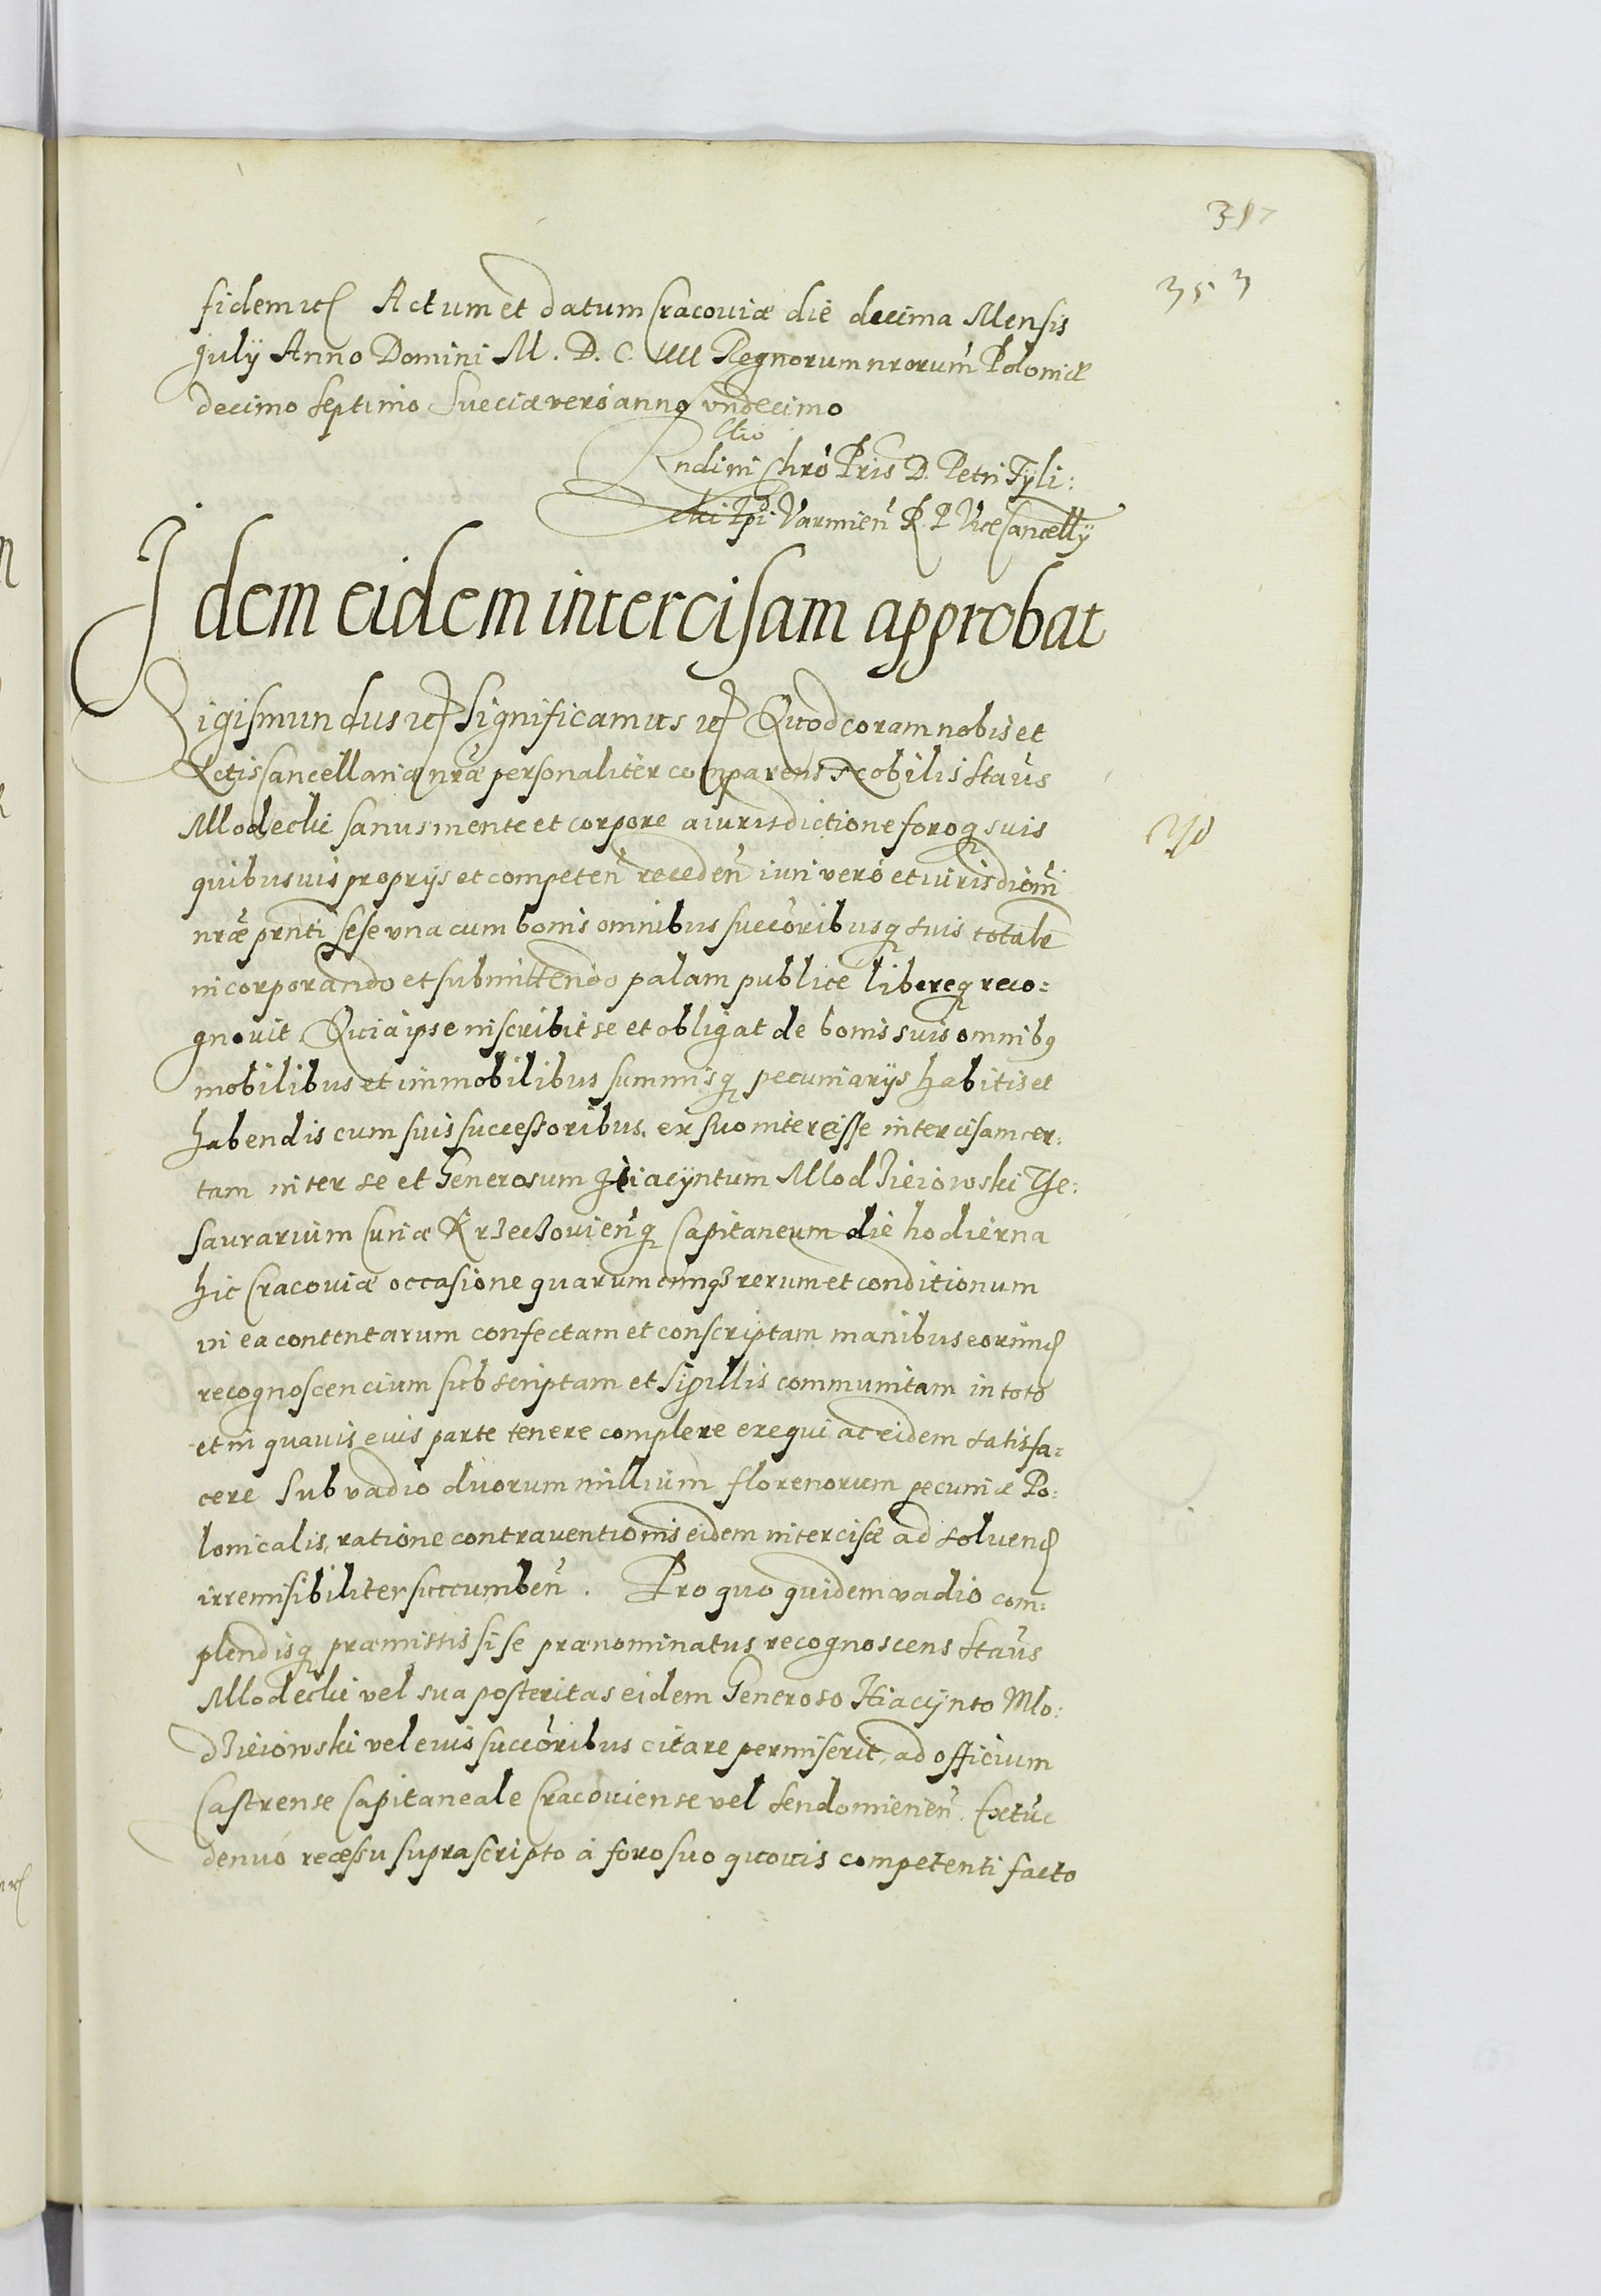 353
fidem etc Actum et datum Cracoviæ die decima Mensis
July Anno Domini M. D. C. IIII Regnorum nrorum Poloniæ
decimo septimo Sueciæ vero anno vndecimo
Rndi in Chro Pris D. Petri Tyli:
cki Epi Varmien R. P. Vice Cancellÿ
Idem eidem intercisam approbat
Sigismundus etc Significamus etc Quod coram nobis et
Actis Cancellariæ nræ personaliter comparens Nobilis Staus
Mlodecki sanus mente et corpore a iurisdictione foroq suis
quibusuis proprijs et competen receden iuri vero et iurisdioni
nræ prnti sese vna cum bonis omnibus succoribusq suis totalr
incorporando et submittendo palam publice libereq reco=
gnouit Quia ipse inscribit se et obligat de bonis suis omnibg
mobilibus et immobilibus summisq pecuniarijs habitis et
habendis cum suis successoribus, ex suo interesse intercisam cer:
tam inter se et Generosum Hiacÿntum Mlodzieiowski The:
saurarium Curiæ Krzeczovienq Capitaneum die hodierna
hic Cracoviæ occasione quarumcunq rerum et conditionum
in ea contentarum confectam et conscriptam manibus eorund
recognoscencium subscriptam et sigillis communitam in toto
et in quauis eius parte tenere complere exequi ac eidem satisfa=
cere sub vadio duorum millium florenorum pecuniæ Po:
lonicalis, ratione contrauentionis eidem intercisæ ad soluend
irremisibiliter succumben. Pro quo quidem vadio com:
plendisq præmissis si se prænominatus recognoscens Staus
Mlodecki vel sua posteritas eidem Generoso Hiacÿnto Mlo:
dzieiowski vel eius succoribus citare permiserit, ad officium
Castrense Capitaneale Cracouiense vel Sendomirien. Ex tuc
denuo recessu suprascripto a foro suo quouis competenti facto